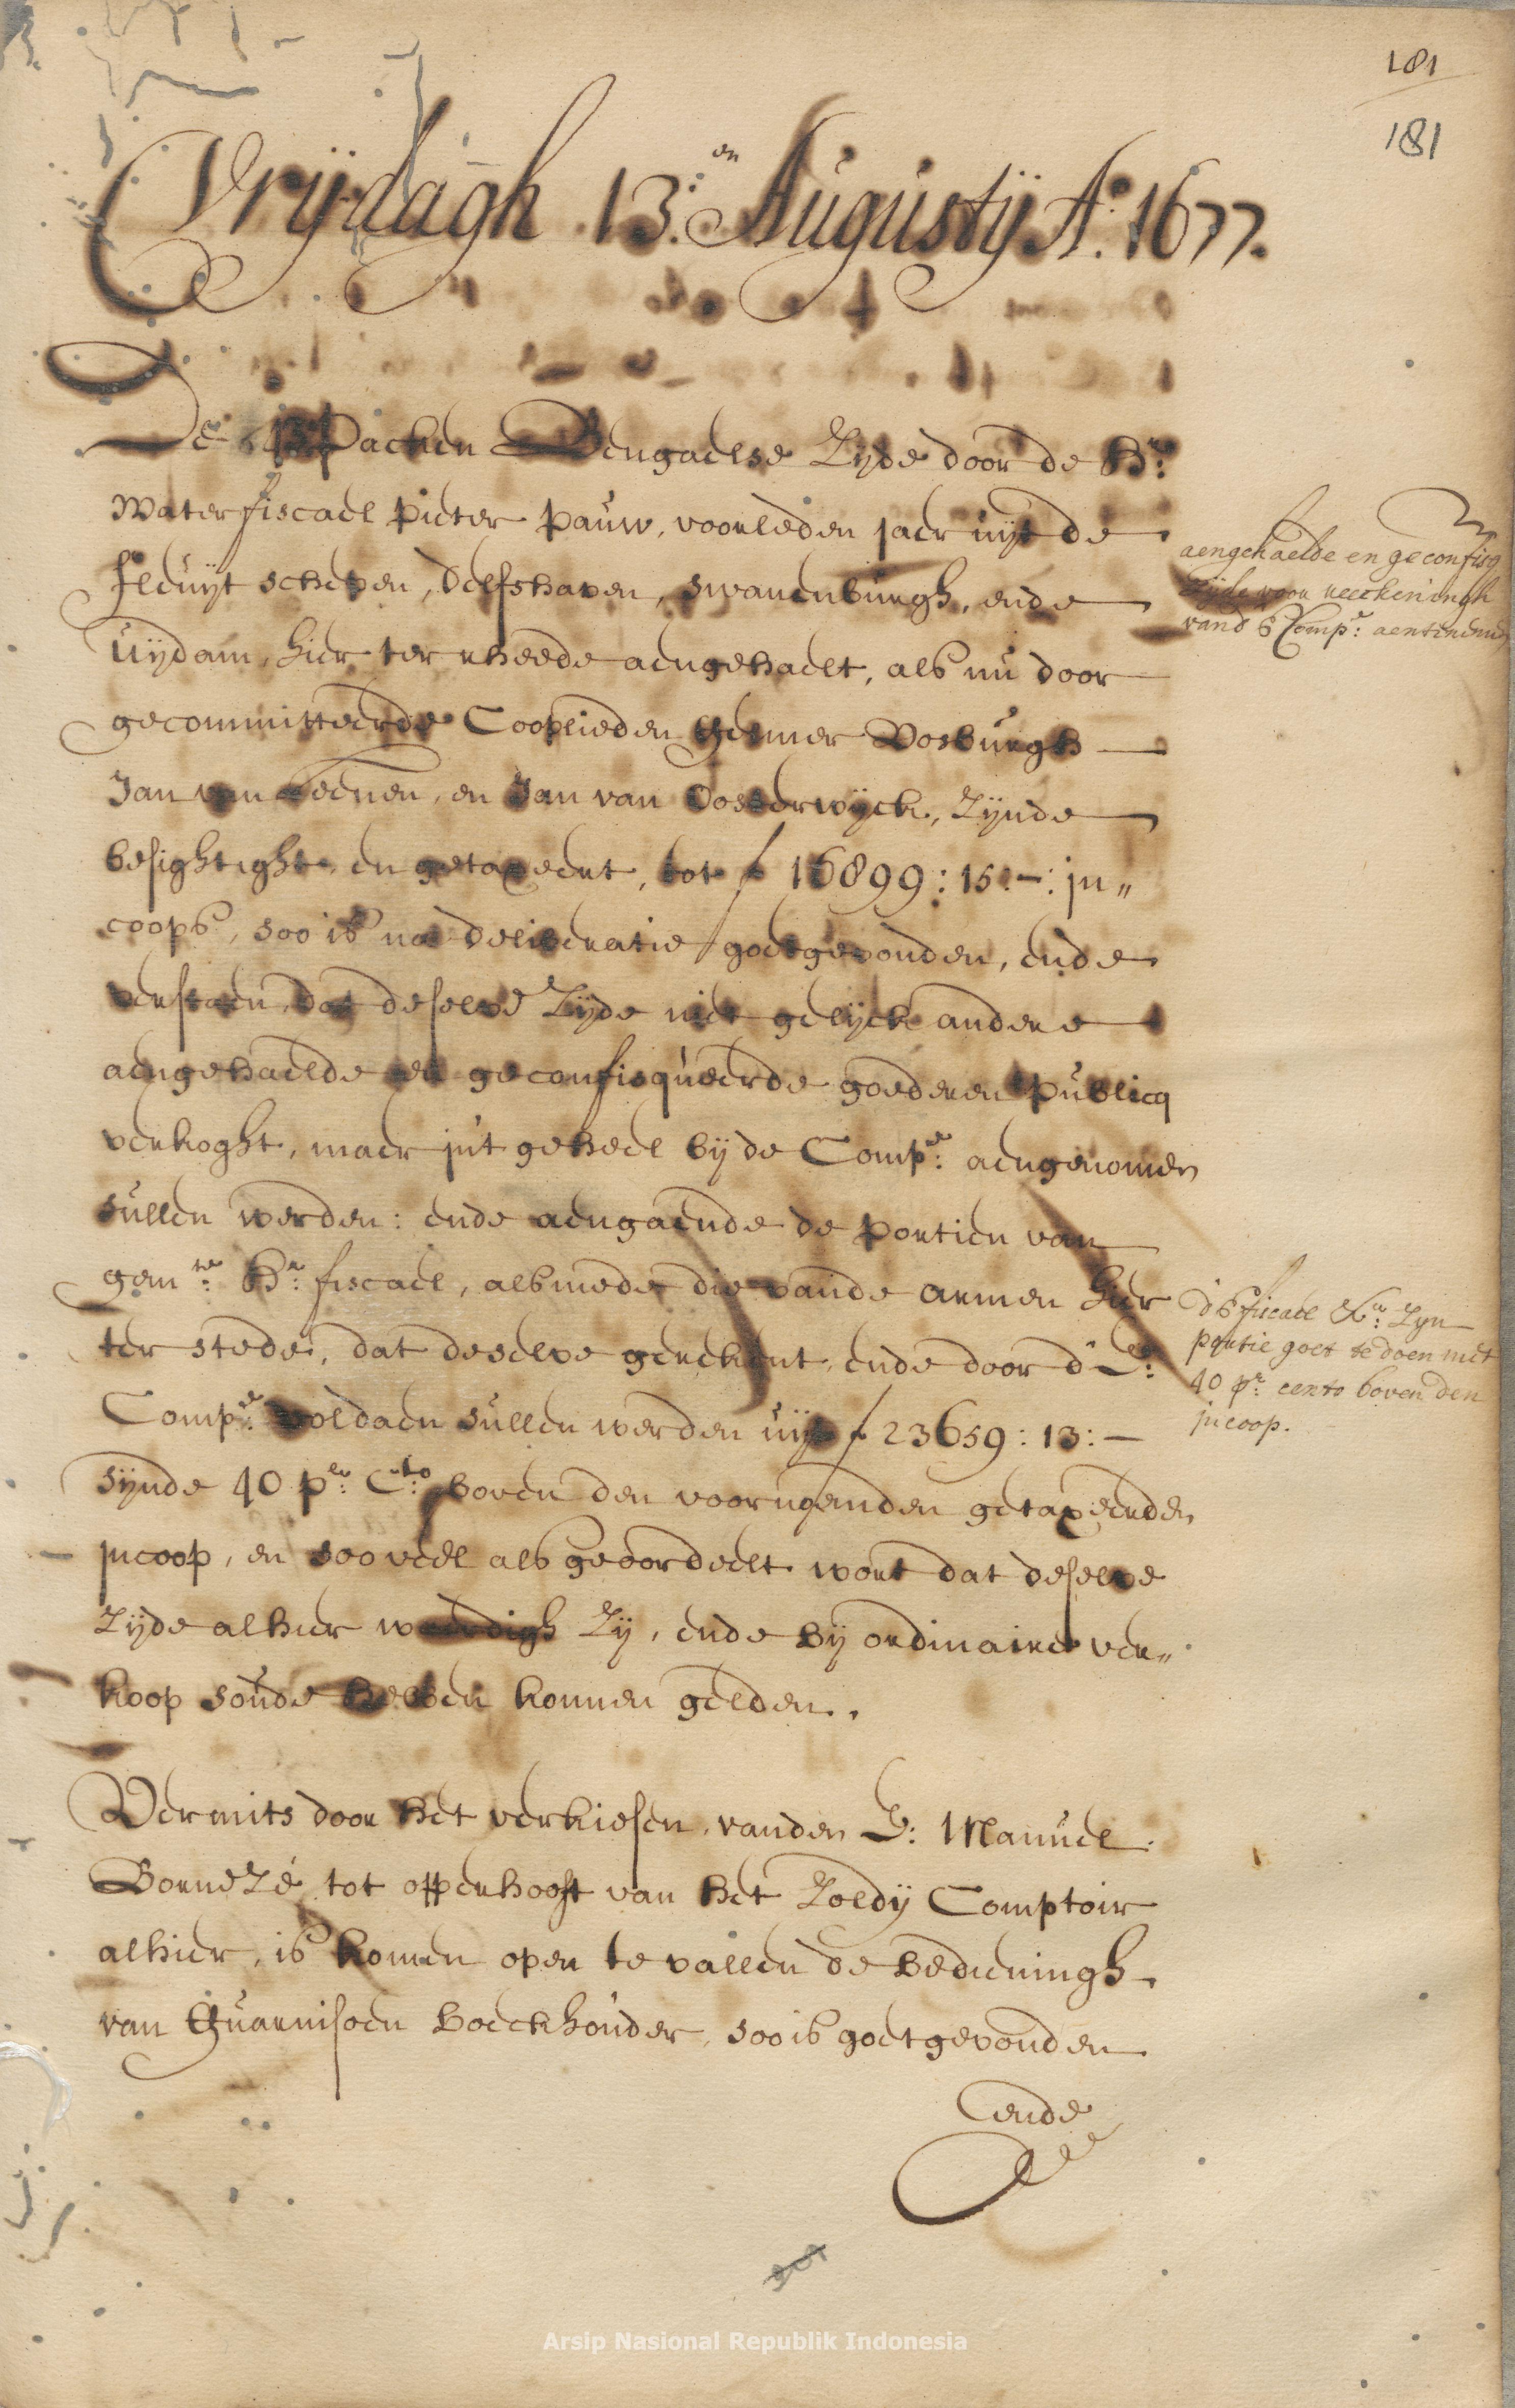 181
181
Vrijdagh 13:en Augustij Ao: 1677.
De Packen Bengaelse Zyde door de Hr:
Waterfiscael Pieter Pauw, voorleden jaer uijt de
fleuijt schepen, Delfshaven, Swanenburgh, ende
Uijdam, hier ter rheede aengehaelt, als nu door
gecommitteerde Cooplieden Gelmer Vosburgh
Jan van Leenen, en Jan van Oosterwijck, Zijnde
besightight, en getaxeert, tot f 16899: 15:-: in„
coops, soo is na deliberatie goetgevonden, ende
verstaen, dat deselve Zijde niet gelijck andere
aengehaelde en geconfisqueerde goederen publicq
verkoght, maer int geheel bij de Compe: aengenomen
sullen werden: ende aengaende de portien van
gemte: Hr: fiscael, alsmede die vande armen hier
ter stede, dat deselve gerekent, ende door d'E:
Compe: voldaen sullen werden uijt f 23659: 13:-
sijnde 40 pr: Cto: boven den voornoemden getaxeerden
incoop, en soo veel als geoordeelt wort dat deselve
Zijde alhier waerdigh Zij, ende bij ordinaire ver„
koop soude hebben konnen gelden.
aengehaelde en geconfisq
Zijde voor reeckeningh
vand E Compe: aentenemen
d'E fiscael &ca: Zyn
portie goet te doen met
40 pr: cento boven den
incoop.
Vermits door het verkiesen vanden E: Manuel
Bornezé tot opperhooft van het Zoldij Comptoir
alhier, is komen open te vallen de bedieningh
van Guarnisoen boeckhouder, soo is goetgevonden
ende
Arsip Nasional Republik Indonesia